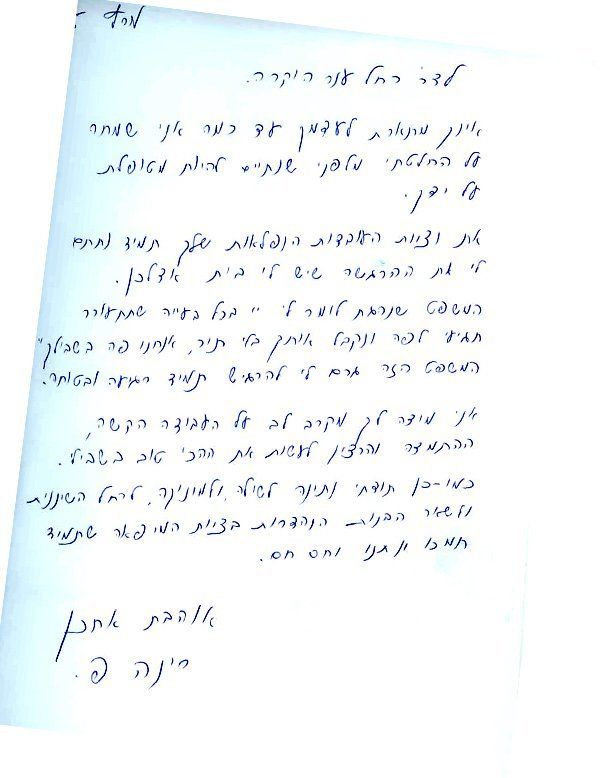 מרץ
לדר' רחל ענר היקרה.
אינך מתארת לעצמך עד כמה אני שמחה
על החלטתי מלפני שנתיים להיות מטופלת
על ידך.
את וציות העובדות הנפלאות שלך תמיד נתתם
לי את ההרגשה שיש לי בית אצלכן.
המשפט שנהגת לומר לי "בכל בעייה שתתעורר
תגיעי לפה ונקבל אותך בלי תור, אנחנו פה בשבילך"
המשפט הזה גרם לי להרגיש תמיד רגועה ובטוחה.
אני מודה לך מקרב לב על העבודה הקשה,
ההתמדה והרצון לעשות את הכי טוב בשבילי.
כמו-כן תודתי נתונה לשילה, ולמוניקה, לרחל השיננית
ולשאר הבנות הנהדרות בצוות המרפאה שתמיד
תמכו ונתנו יחס חם.
אוהבת אתכן
רינה פ.